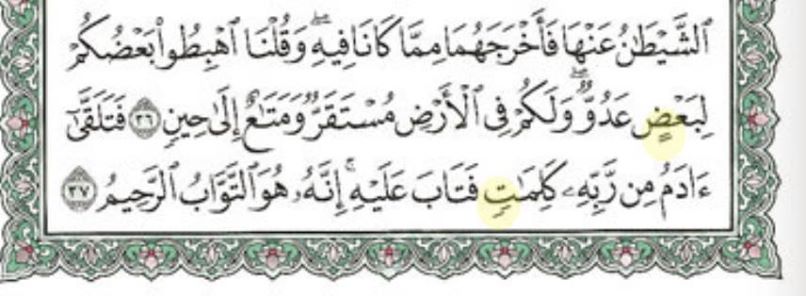 ٱلشَّيْطَٰنُ عَنْهَا فَأَخْرَجَهُمَا مِمَّا كَانَا فِيهِۖ وَقُلْنَا ٱهْبِطُوا۟ بَعْضُكُمْ
لِبَعْضٍ عَدُوٌّۖ وَلَكُمْ فِى ٱلْأَرْضِ مُسْتَقَرٌّ وَمَتَٰعٌ إِلَىٰ حِينٍ ٣٦ فَتَلَقَّىٰٓ
ءَادَمُ مِن رَّبِّهِۦ كَلِمَٰتٍ فَتَابَ عَلَيْهِۚ إِنَّهُۥ هُوَ ٱلتَّوَّابُ ٱلرَّحِيمُ ٣٧